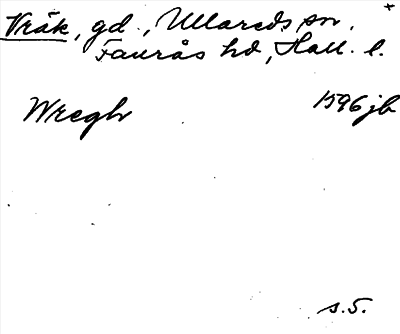 Vråk, gd., Ullareds sn.
Faurås hd, Hall. l.
Wregh 1596 jb
s. 5.